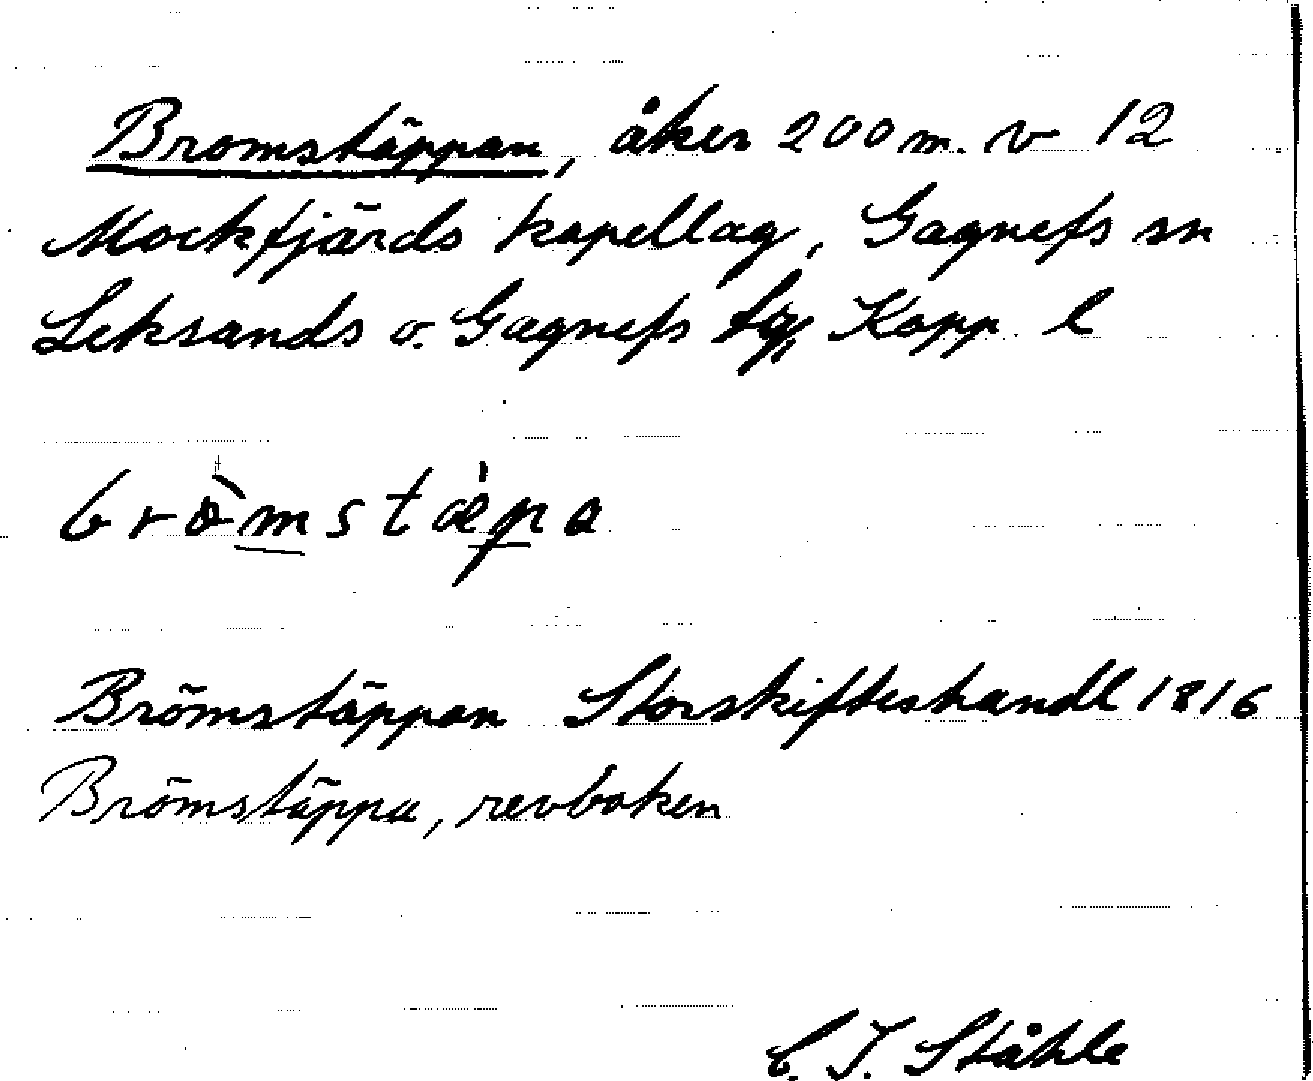 Bromstäppan, åker 200 m. v 12
Mockfjärds kapellag, Gagnefs sn
Leksands o. Gagnefs tg, Kopp. l
Brömstäppan Storskifteshandl 1816
Brömstäppa, revboken
C. I. Ståhle